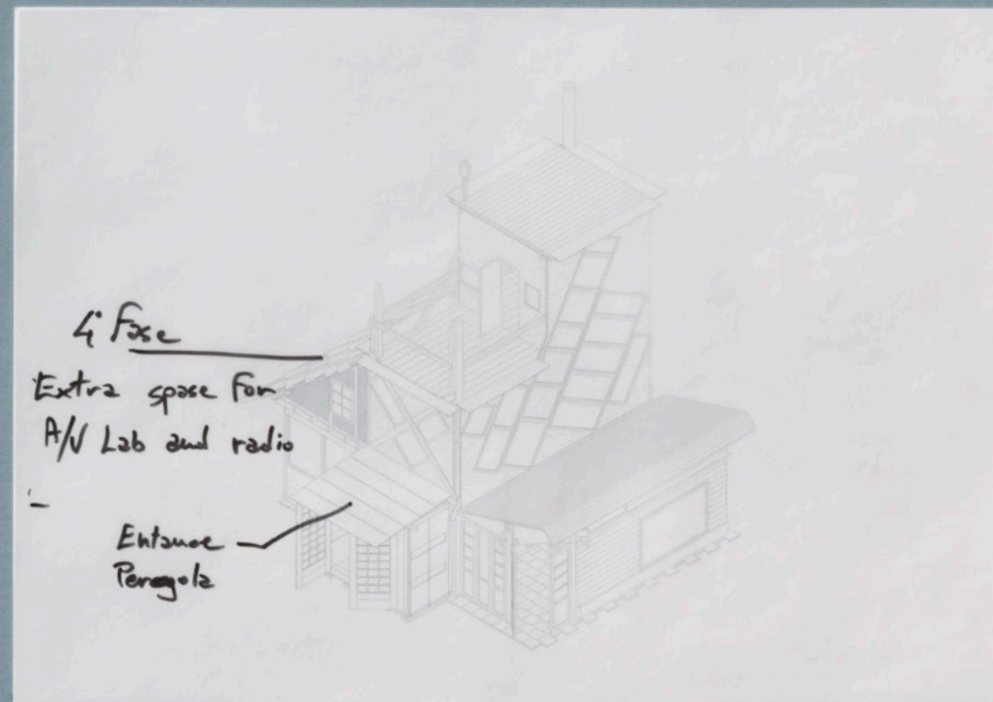 4° Fase
Extra spase for
A/V Lab and radio
Entance
Peregola